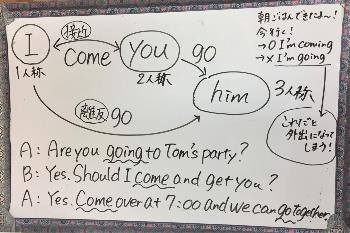 I
1人称
接近
come
you
2人称
go
him
3人称
離反
go
朝ごはんできたよ〜!
今行く!
→○ I'm coming
→× I'm going
これだと
外出になって
しまう!
A: Are you going to Tom's party?
B: Yes. Should I come and get you?
A: Yes. Come over at 7:00 and we can go together.